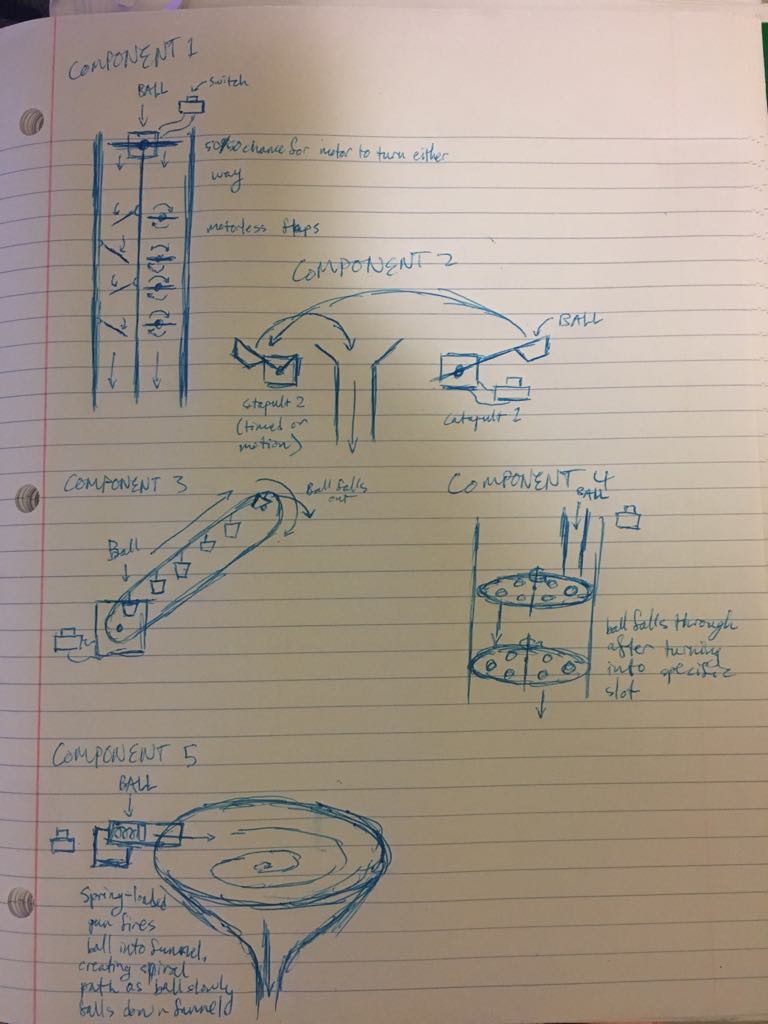 COMPONENT 1
BALL
switch
50/50 chance for motor to turn either
way
motorless flaps
COMPONENT 2
BALL
catapult 2
(timed or
motion)
catapult 1
COMPONENT 3
Ball falls
out
Ball
COMPONENT 4
BALL
ball falls through
after turning
into specific
slot
COMPONENT 5
BALL
Spring-loaded
gun fires
ball into funnel,
creating spiral
path as ball slowly
falls down funnel